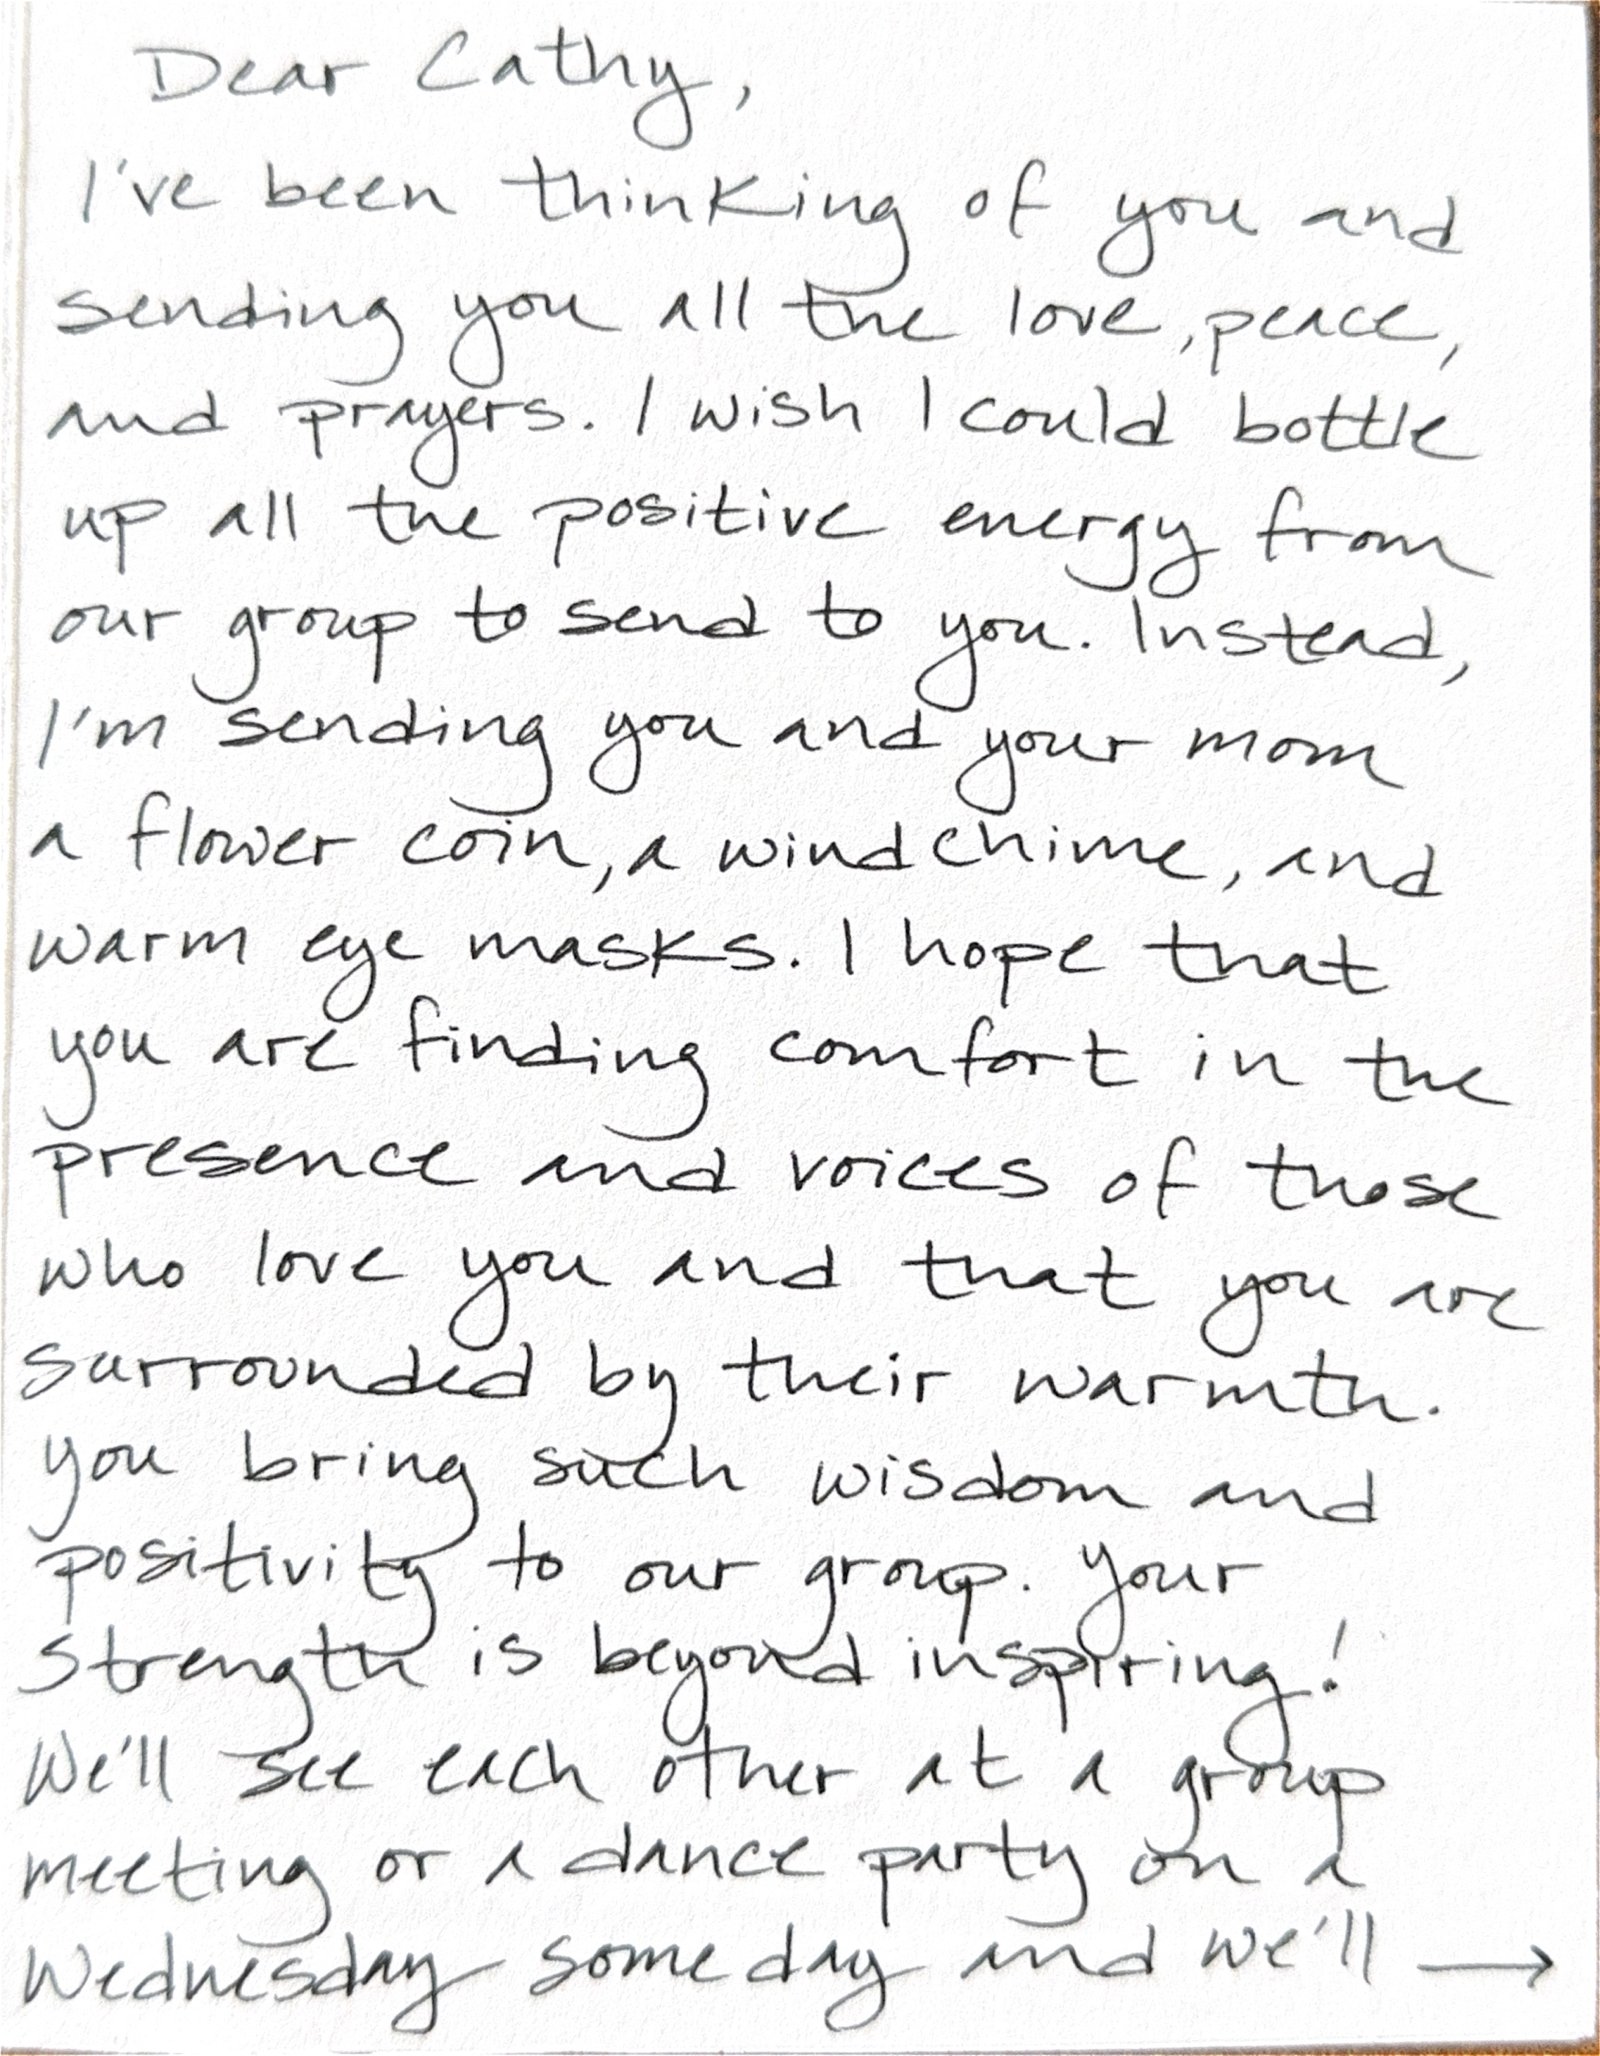 Dear Cathy,
I've been thinking of you and
sending you all the love, peace,
and prayers. I wish I could bottle
up all the positive energy from
our group to send to you. Instead,
I'm sending you and your mom
a flower coin, a windchime, and
warm eye masks. I hope that
you are finding comfort in the
presence and voices of those
who love you and that you are
surrounded by their warmth.
You bring such wisdom and
positivity to our group. Your
strength is beyond inspiring!
We'll see each other at a group
meeting or a dance party on a
Wednesday someday and we'll →